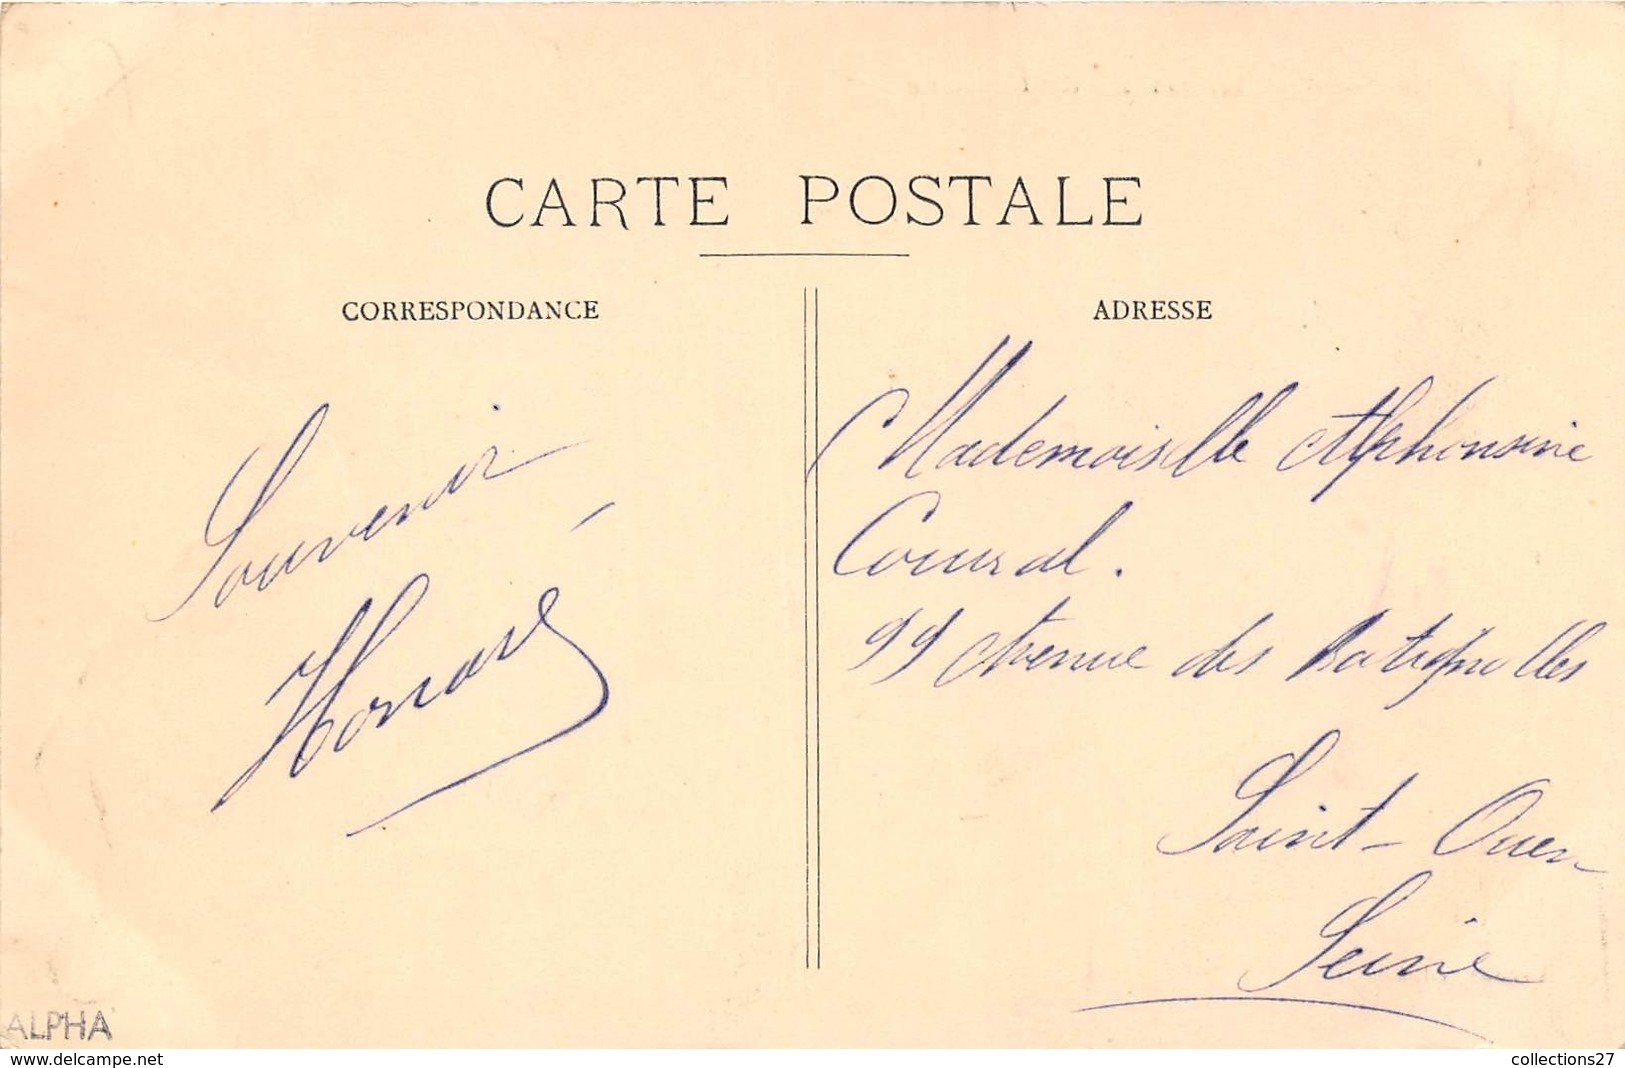 CARTE POSTALE
CORRESPONDANCE
ADRESSE
Souvenir
Honoré
Mademoiselle Alphonsine
Courral.
99 Avenue des Batignolles
Saint-Ouen
Seine
ALPHA
www.delcampe.net
collections27